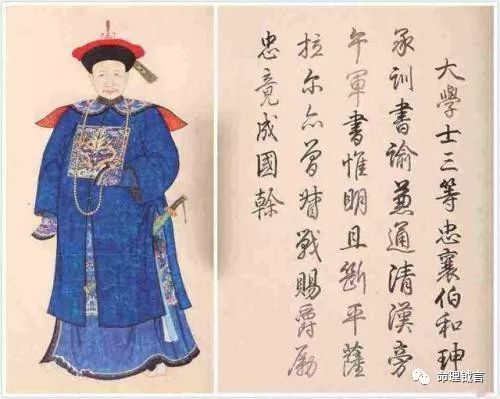 大學士三等忠襄伯和珅
承訓書諭兼通清漢旁
午軍書惟明且斷平薩
拉尔亦曾督戰賜爵勵
忠竟成國幹
命理钺言